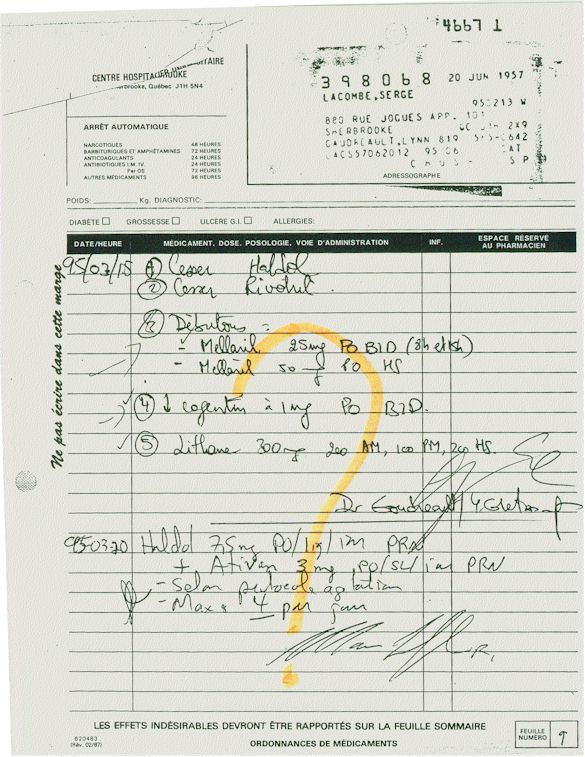 4667 1
CENTRE HOSPITAL
Sherbrooke, Québec J1H 5N4
398068 20 JUN 1957
LACOMBE,SERGE
950213 W
880 RUE JOGUES APP. 101
SHERBROOKE 2X9
GAUDREAULT,LYNN 819
LACS57062012 95 06
ADRESSOGRAPHE
ARRÊT AUTOMATIQUE
NARCOTIQUES 48 HEURES
BARBITURIQUES ET AMPHÉTAMINES 72 HEURES
ANTICOAGULANTS 24 HEURES
ANTIBIOTIQUES I.M. IV. 24 HEURES
Per OS 72 HEURES
AUTRES MÉDICAMENTS 96 HEURES
POIDS: Kg. DIAGNOSTIC:
DIABÈTE GROSSESSE ULCÈRE G.I. ALLERGIES:
DATE/HEURE MÉDICAMENT, DOSE, POSOLOGIE, VOIE D'ADMINISTRATION INF. ESPACE RÉSERVÉ AU PHARMACIEN
Ne pas écrire dans cette marge
95/03/15 1 Cesser Haldol
2 Cesser Rivotril.
3 Débutons =
- Mellaril 25mg PO BID (8h et 15h)
- Mellaril 50 mg PO HS
4 ↓ cogentin à 1mg PO BID.
5 Lithane 300mg AM, PM, HS.
Dr
95-03-20 Haldol 7,5mg PO/ /im PRN
+ Ativan 3mg PO/SL/im PRN
- Selon protocole agitation
- Max: 4 par jour
LES EFFETS INDÉSIRABLES DEVRONT ÊTRE RAPPORTÉS SUR LA FEUILLE SOMMAIRE
620483
(Rév. 02/87)
ORDONNANCES DE MÉDICAMENTS
FEUILLE NUMÉRO 9